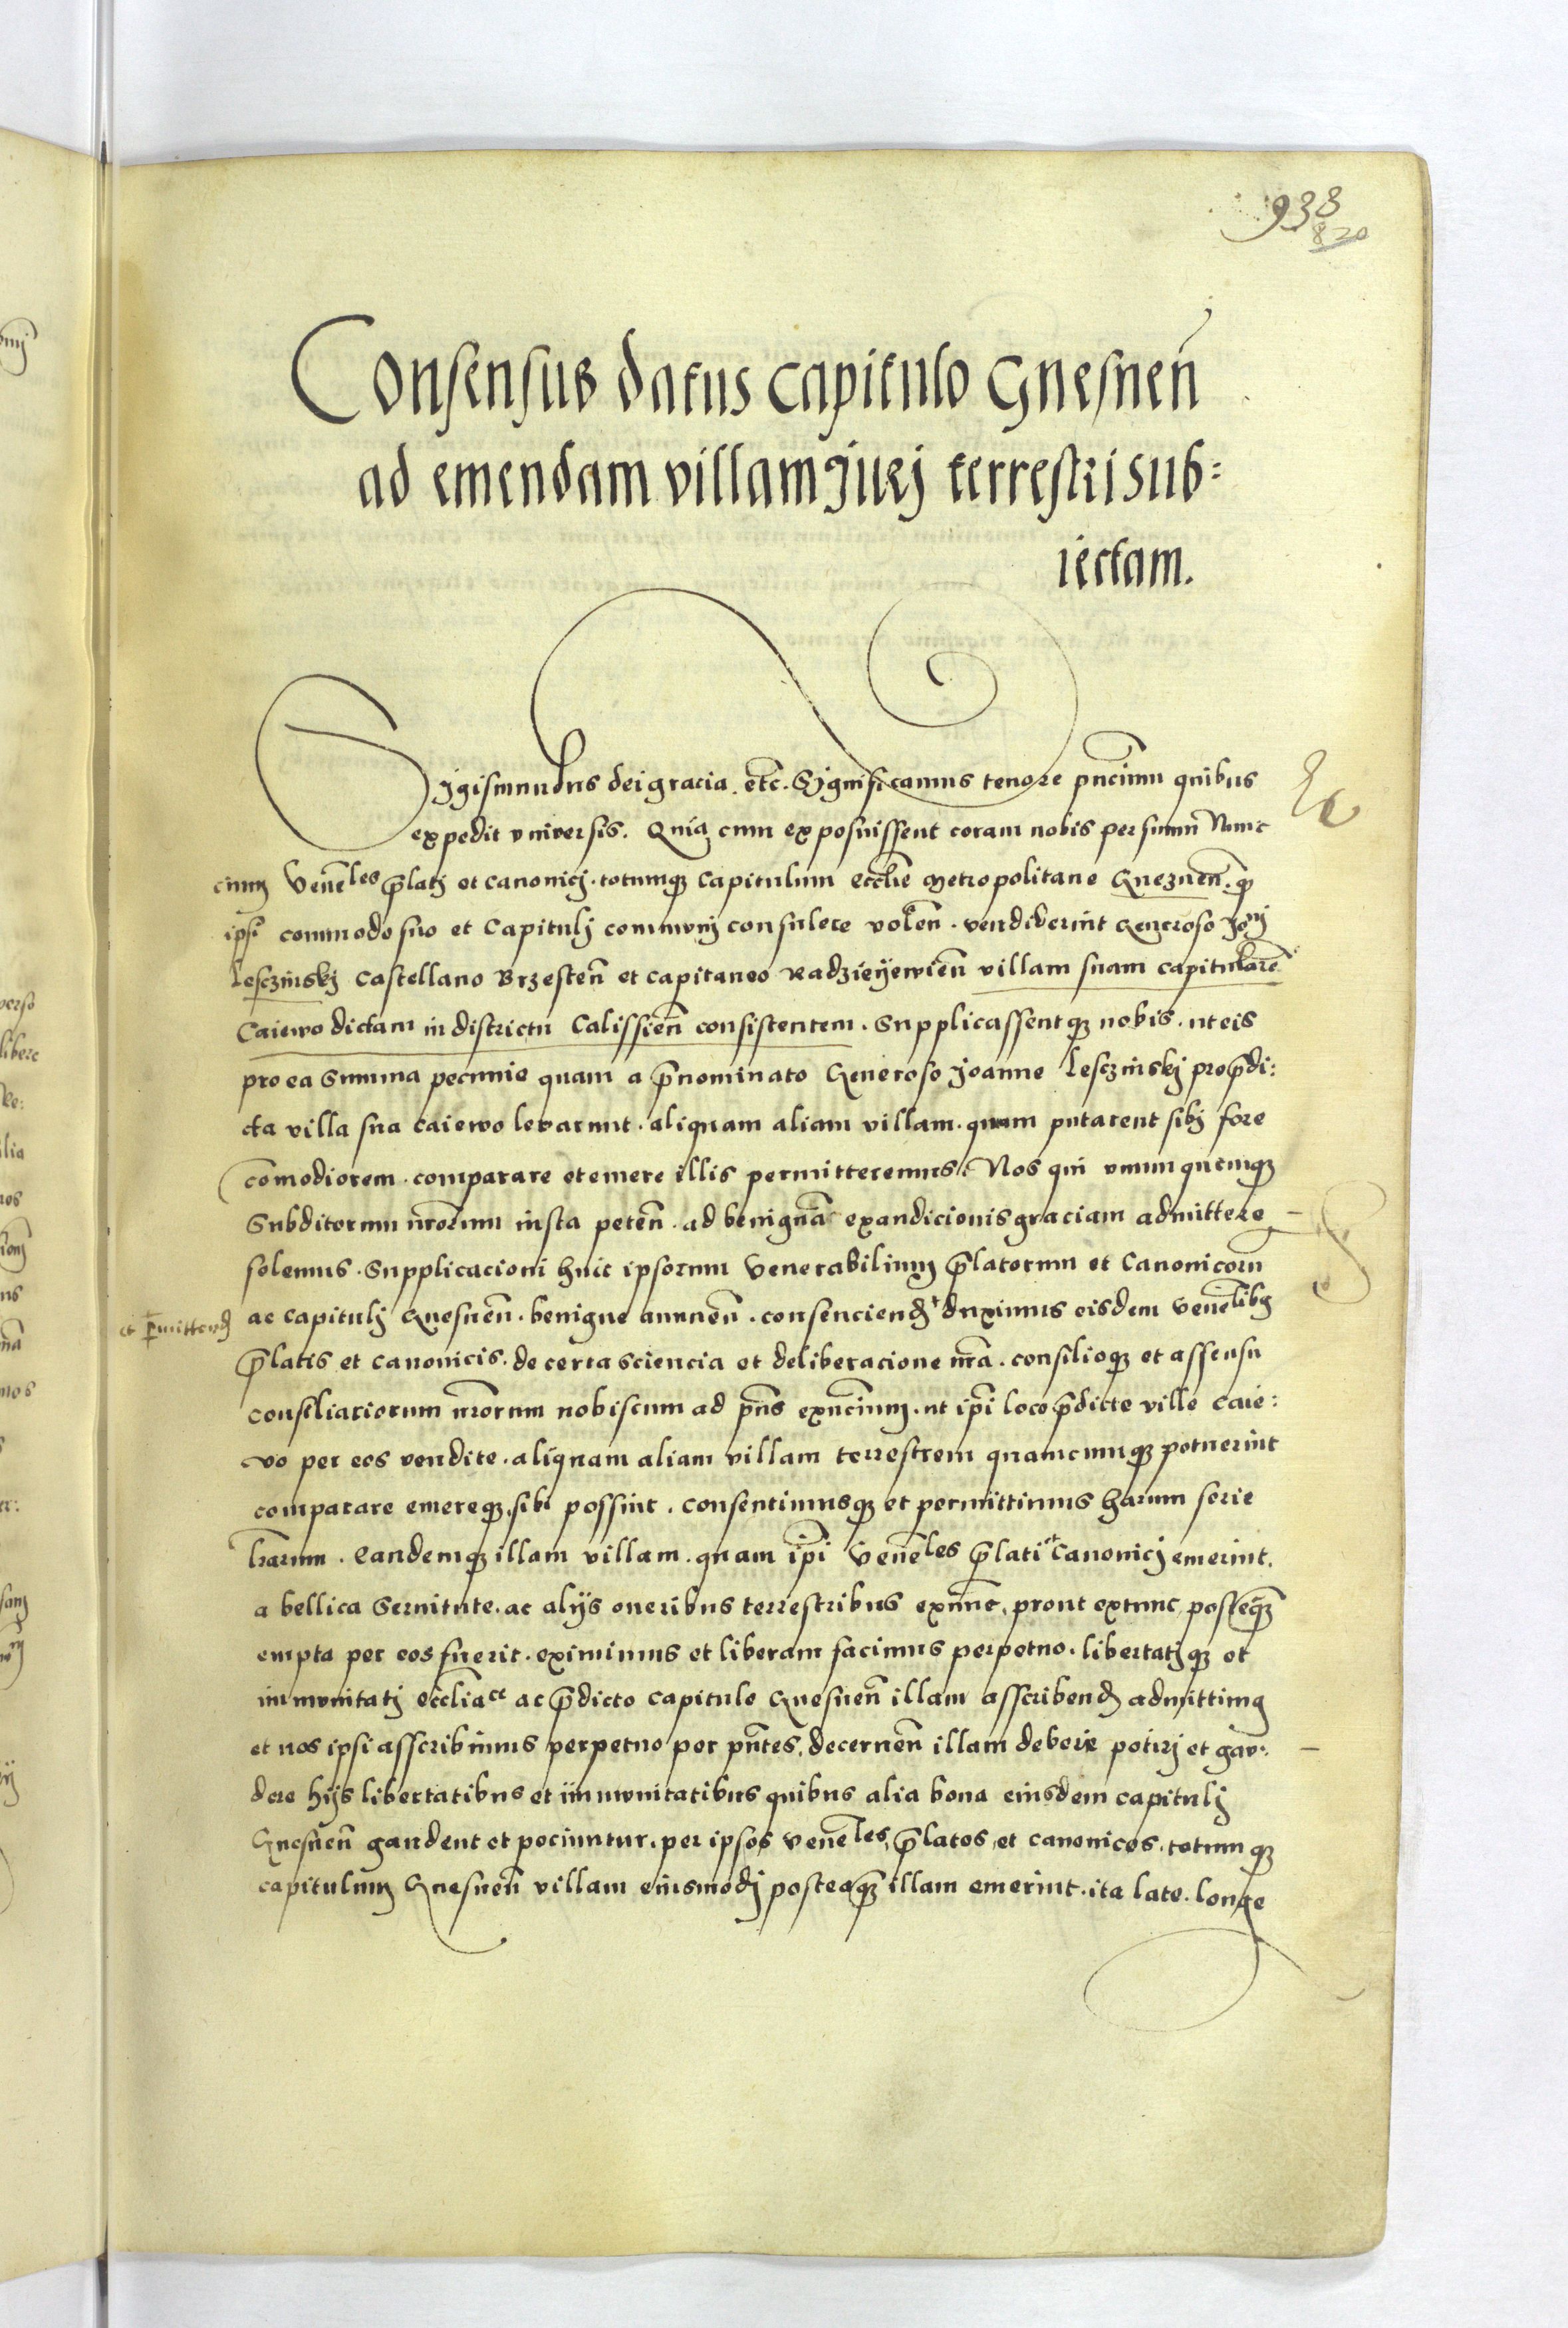 938
820
Consensus datus Capitulo Gnesnen̄
ad emendam villam Jurj terrestri sub=
iectam.
Sigismundus dei gracia. etc̄. Significamus tenore pn̄cium quibus
expedit vniversis. Quia cum exposuissent coram nobis per suum Nunc
cium Venēles p̄latj et canonicj. totumqꝫ Capitulum eccl̄ie Metropolitane Gneznen̄. qꝫ
ipsi commodo suo et Capitulj communj consulere volen̄. vendiderint Generoso Joannj
Lesczinskj Castellano Brzesten̄ et Capitaneo Radzieÿewien̄ villam suam capitularem̄
Caiewo dictam in districtu Calissien̄ consistentem. Supplicassentqꝫ nobis. ut eis
pro ea Summa pecunie quam a p̄nominato Generoso Joanne Lesczinskj pro p̄di:
cta villa sua Caiewo levarunt. aliquam aliam villam. quam putarent sibj fore
com̄odiorem. comparare et emere illis permitteremus. Nos qui vnumquemqꝫ
Subditorum nr̄orum iusta peten̄. ad benignā exaudicionis graciam admittere
solemus. Supplicacioni huic ipsorum Venerabilium p̄latorum et Canonicorū
ac Capitulj Gnesnen̄. benigne annuen̄. consenciend̄ duximus eisdem Venēlibꝫ
et p̄mittend̄
p̄latis et canonicis. de certa sciencia et deliberacione nr̄a. consilioqꝫ et assensu
consiliariorum nr̄orum nobiscum ad pn̄s exn̄cium. ut ip̄i loco p̄dicte ville Caie:
vo per eos vendite. aliquam aliam villam terrestrem quamcumqꝫ potuerint
comparare emereqꝫ sibi possint. Consentimusqꝫ et permittimus harum serie
lr̄arum. Eandemqꝫ illam villam. quam ip̄i Venēles p̄lati et Canonicj emerint.
a bellica Servitute. ac alÿs oneribus terrestribus exnunc. prout extunc posteaqꝫ
empta per eos fuerit. eximimus et liberam facimus perpetuo. libertatjqꝫ et
immunitatj eccl̄iace ac p̄dicto Capitulo Gnesnen̄ illam asscribend̄ admittimꝫ
et nos ipsi asscribimus perpetuo per pn̄tes. decernen̄ illam debere potirj et gau:
dere hijs libertatibus et im̄unitatibus quibus alia bona eiusdem capitulj
Gnesnen̄ gaudent et pociuntur. per ipsos Venēles p̄latos et canonicos. totumqꝫ
capitulum Gnesnen̄ villam eiusmodj posteaqꝫ illam emerint. ita late. longe